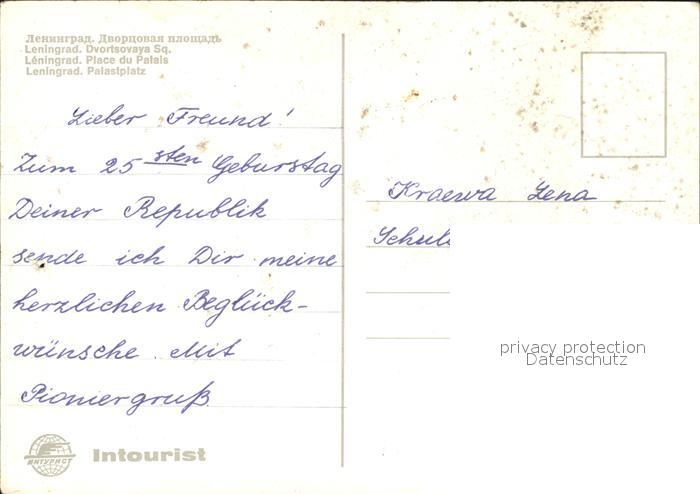 Ленинград. Дворцовая площадь
Leningrad. Dvortsovaya Sq.
Léningrad. Place du Palais
Leningrad. Palastplatz
Lieber Freund!
Zum 25sten Geburstag
Deiner Republik
sende ich Dir meine
herzlichen Beglück-
wünsche. Mit
Pioniergruß
Kraewa Lena
Schul
privacy protection
Datenschutz
ИНТУРИСТ
Intourist